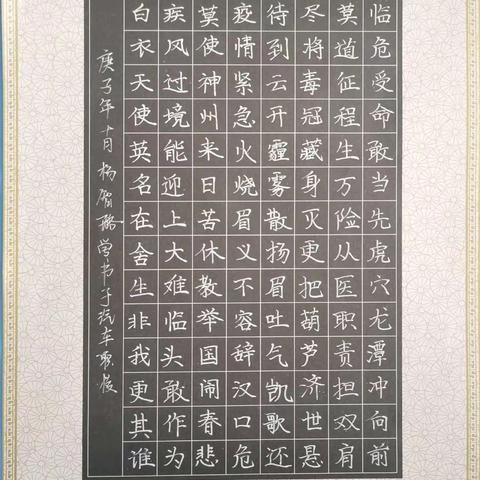 临危受命敢当先虎穴龙潭冲向前
莫道征程生万险从医职责担双肩
尽将毒冠藏身灭更把葫芦济世悬
待到云开霾雾散扬眉吐气凯歌还
疫情紧急火烧眉义不容辞汉口危
莫使神州来日苦休教举国闹春悲
疾风过境能迎上大难临头敢作为
白衣天使英名在舍生非我更其谁
庚子年十月杨学书于汽车职校